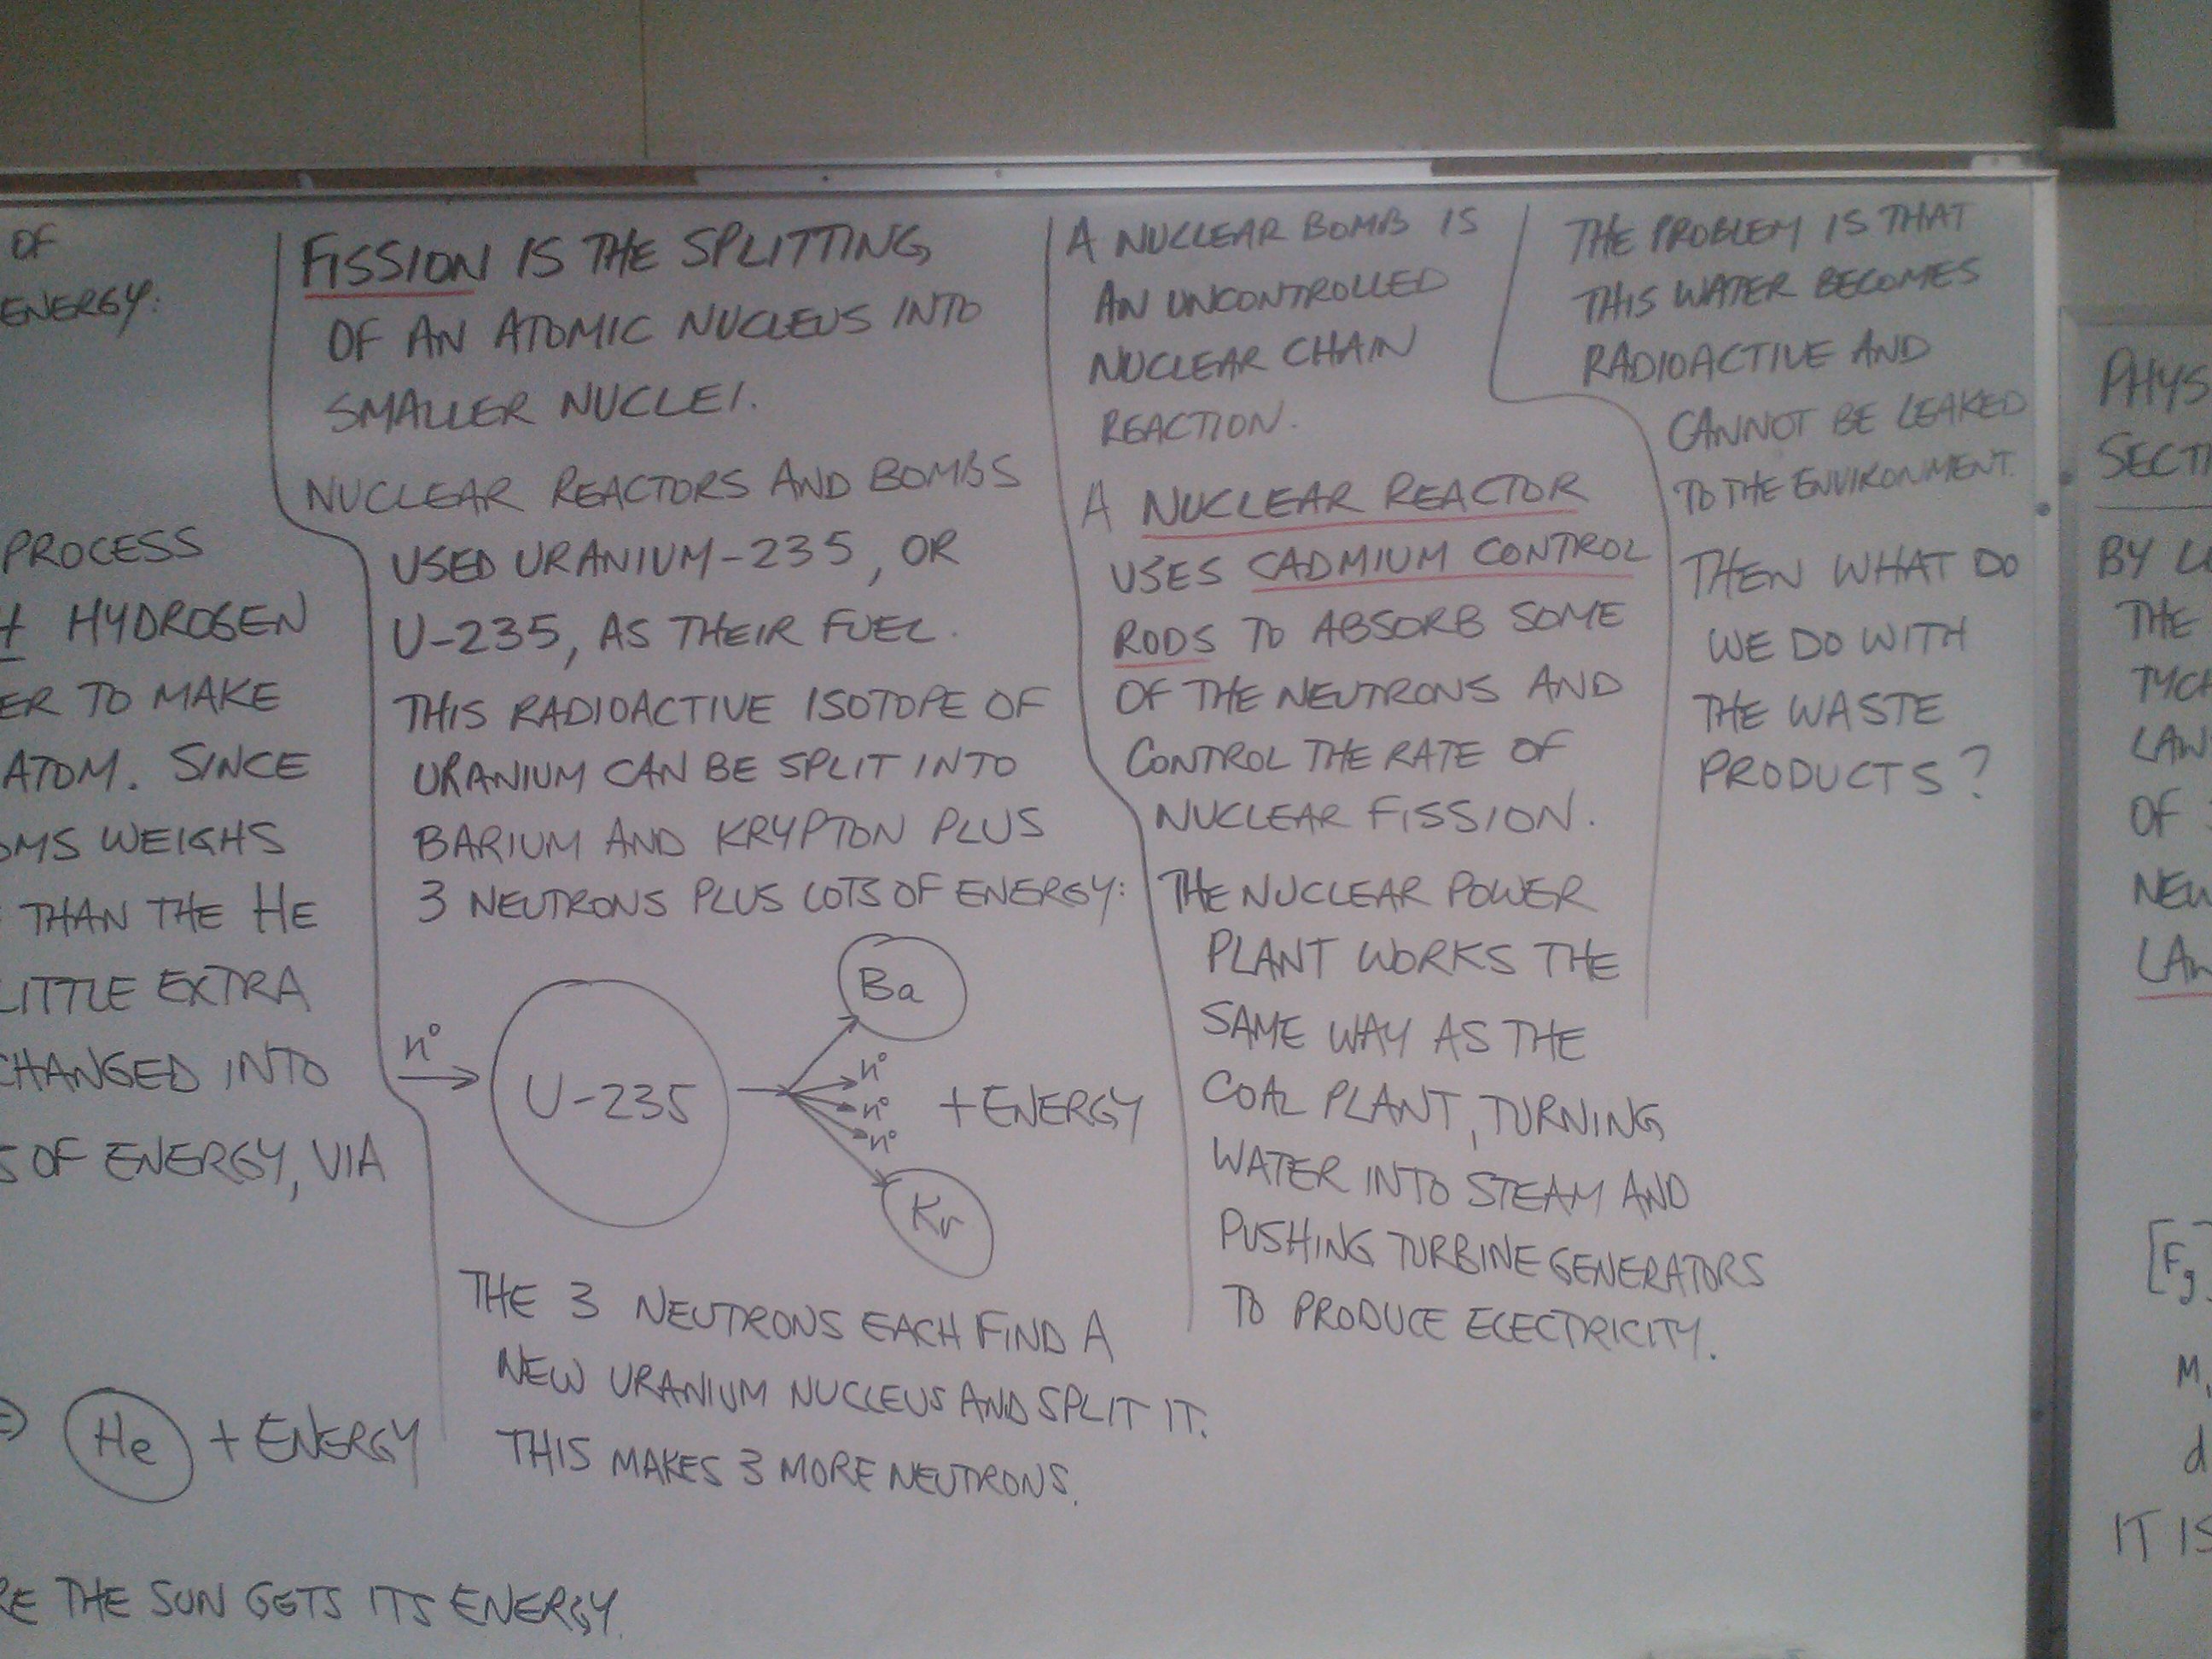 OF
ENERGY:
PROCESS
HYDROGEN
ER TO MAKE
ATOM. SINCE
OMS WEIGHS
THAN THE HE
LITTLE EXTRA
CHANGED INTO
S OF ENERGY, VIA
He + ENERGY
RE THE SUN GETS ITS ENERGY.
FISSION IS THE SPLITTING
OF AN ATOMIC NUCLEUS INTO
SMALLER NUCLEI.
NUCLEAR REACTORS AND BOMBS
USED URANIUM-235, OR
U-235, AS THEIR FUEL.
THIS RADIOACTIVE ISOTOPE OF
URANIUM CAN BE SPLIT INTO
BARIUM AND KRYPTON PLUS
3 NEUTRONS PLUS LOTS OF ENERGY:
n° → U-235
Ba
n°
n°
n°
+ ENERGY
Kr
THE 3 NEUTRONS EACH FIND A
NEW URANIUM NUCLEUS AND SPLIT IT.
THIS MAKES 3 MORE NEUTRONS.
A NUCLEAR BOMB IS
AN UNCONTROLLED
NUCLEAR CHAIN
REACTION.
A NUCLEAR REACTOR
USES CADMIUM CONTROL
RODS TO ABSORB SOME
OF THE NEUTRONS AND
CONTROL THE RATE OF
NUCLEAR FISSION.
THE NUCLEAR POWER
PLANT WORKS THE
SAME WAY AS THE
COAL PLANT, TURNING
WATER INTO STEAM AND
PUSHING TURBINE GENERATORS
TO PRODUCE ELECTRICITY.
THE PROBLEM IS THAT
THIS WATER BECOMES
RADIOACTIVE AND
CANNOT BE LEAKED
TO THE ENVIRONMENT.
THEN WHAT DO
WE DO WITH
THE WASTE
PRODUCTS?
PHYS
SECTI
BY L
THE
TYCH
LAW
OF
NEW
LAW
[Fg
M,
d
IT IS